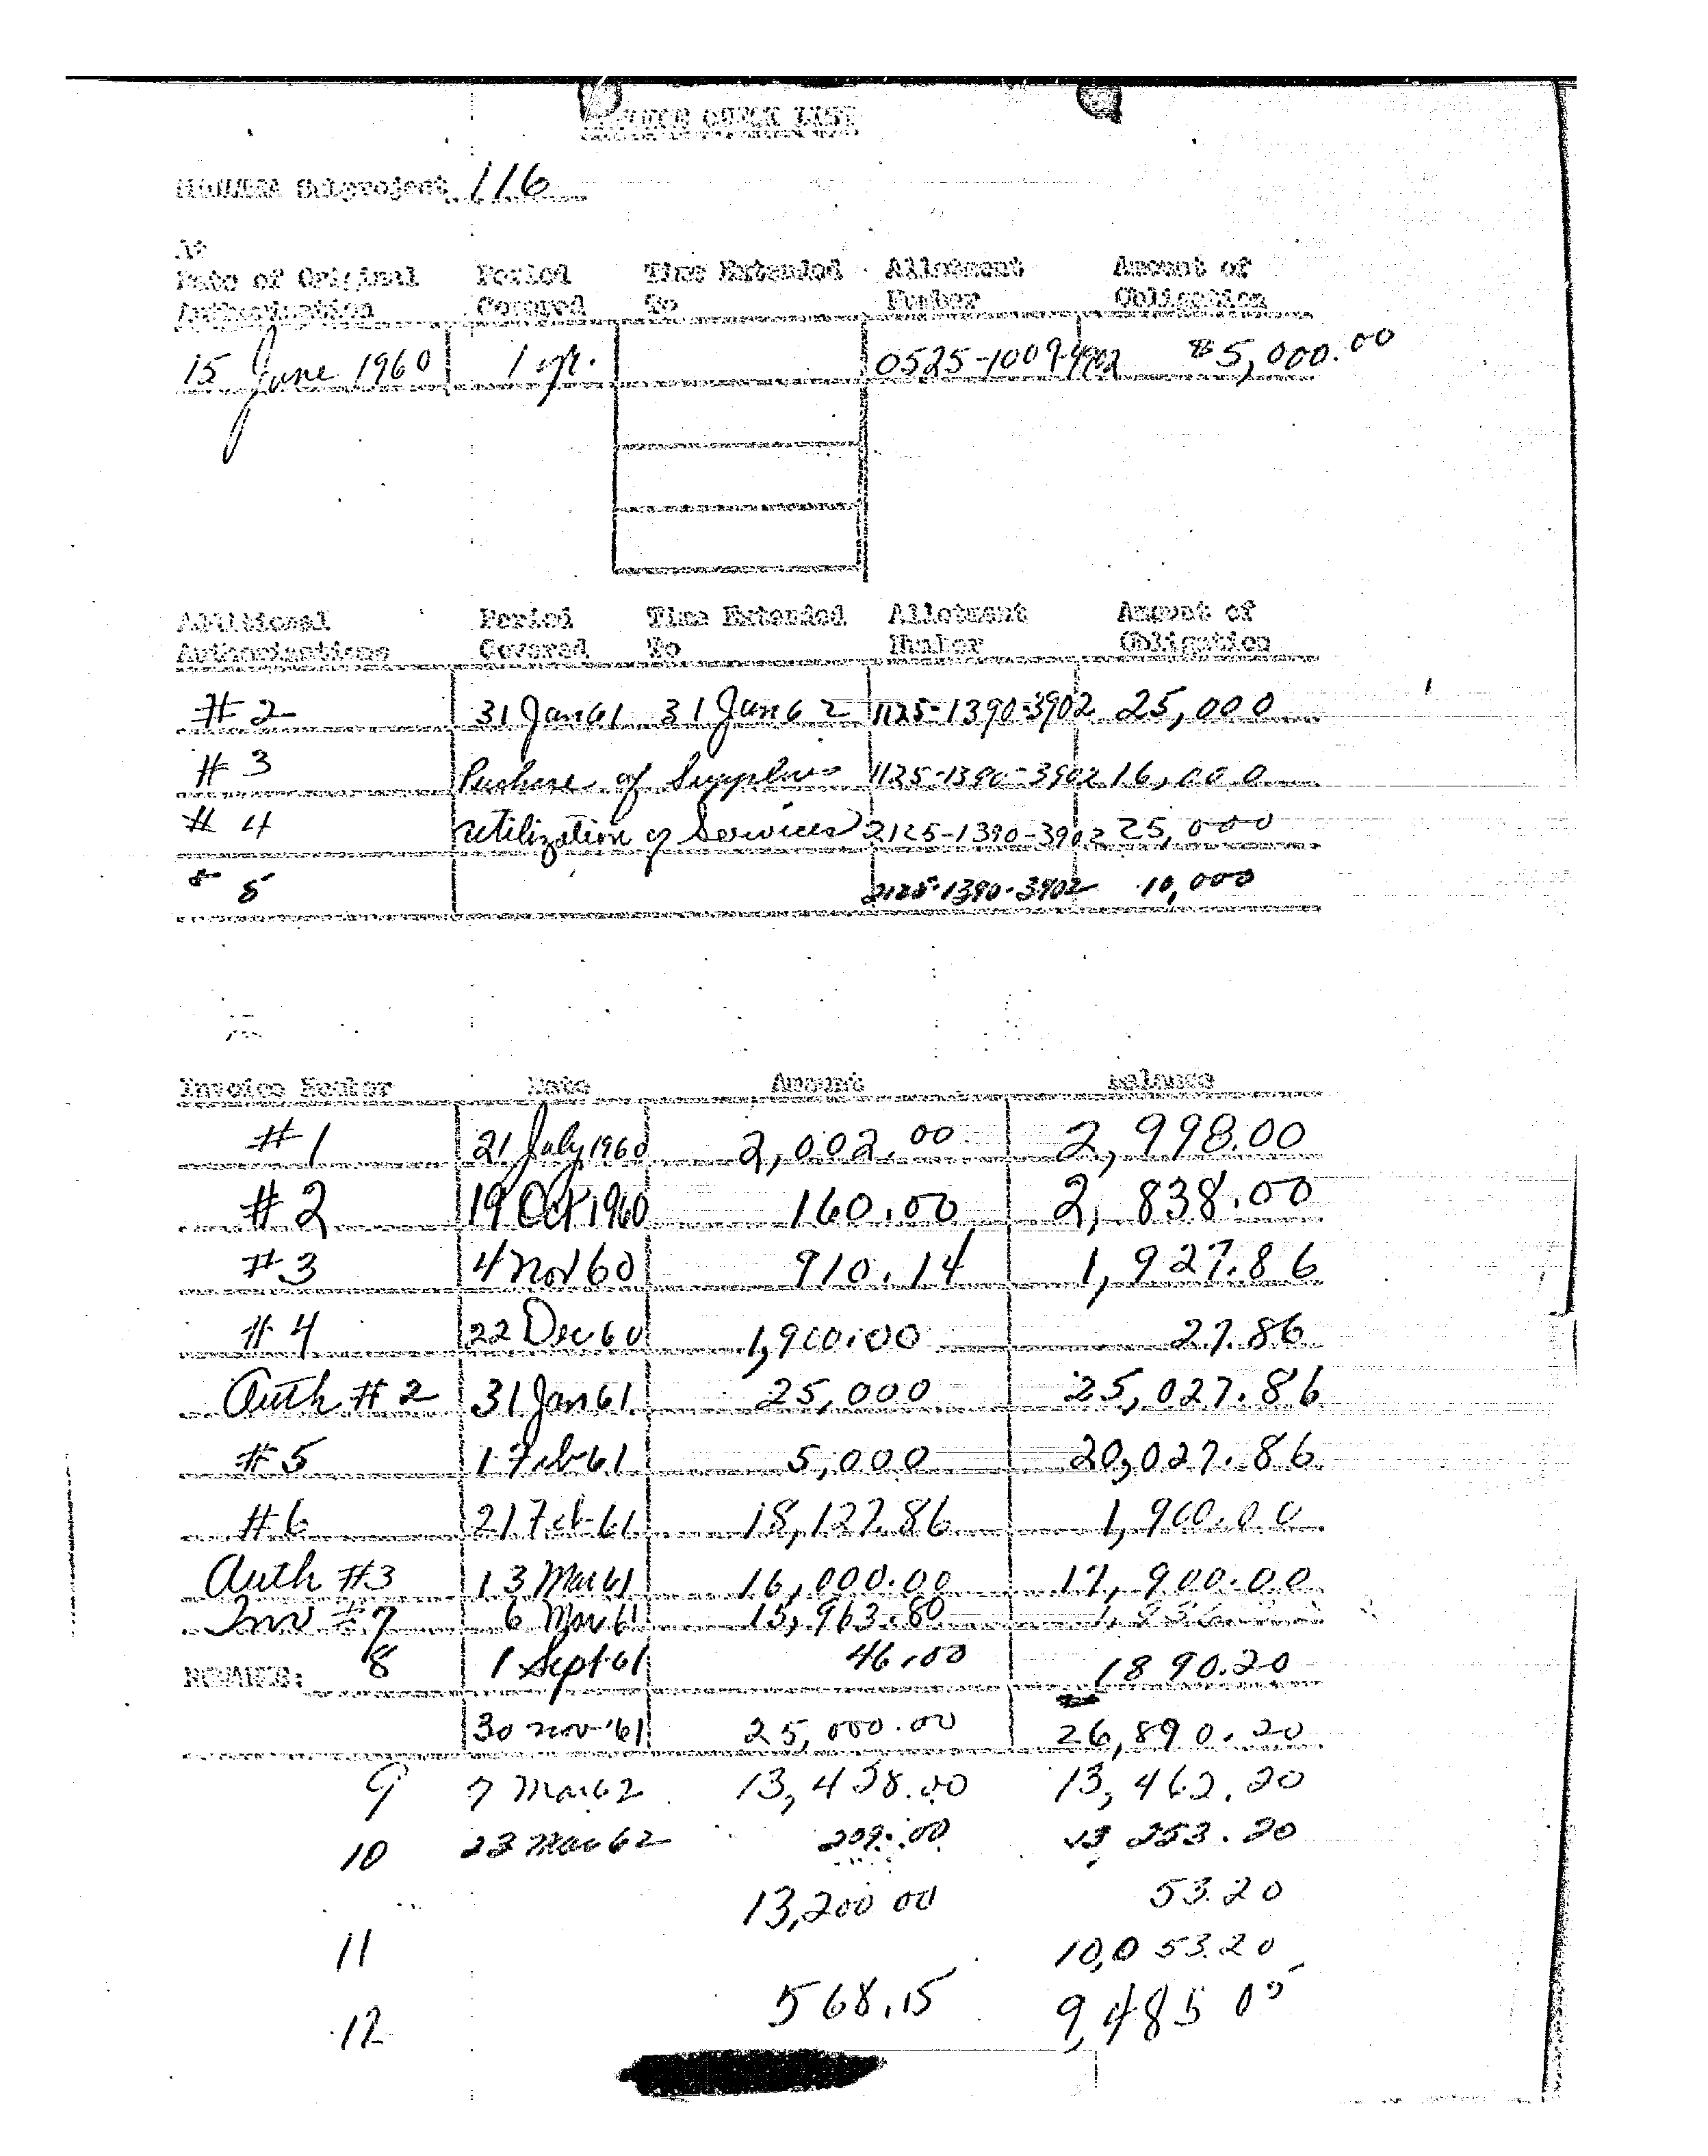 CHECK LIST
MKULTRA Subproject 116
Date of Original Authorization Period Covered Time Extended To Allotment Number Amount of Obligation
15 June 1960 1 yr. 0525-1009-4902 $5,000.00
Additional Authorizations Period Covered Time Extended To Allotment Number Amount of Obligation
# 2 31 Jan 61 31 Jan 62 1125-1390-3902 25,000
# 3 Puchase of Supplies 1125-1390-3902 16,000
# 4 utilization of Services 2125-1390-3902 25,000
# 5 2125-1390-3902 10,000
Invoice Number Date Amount Balance
#1 21 July 1960 2,002.00 2,998.00
#2 19 Oct 1960 160.00 2,838.00
#3 4 Nov 60 910.14 1,927.86
#4 22 Dec 60 1,900.00 27.86
Auth #2 31 Jan 61 25,000 25,027.86
#5 1 Feb 61 5,000 20,027.86
#6 21 Feb 61 18,127.86 1,900.00
Auth #3 13 Mar 61 16,000.00 17,900.00
Inv #7 6 Mar 61 15,963.80
8 1 Sept 61 46.00 1890.20
REMARKS:
30 nov '61 25,000.00 26,890.20
9 7 Mar 62 13,428.00 13,462.20
10 23 Mar 62 209.00 13 253.20
13,200 00 53.20
11 10,053.20
12 568.15 9,485 05